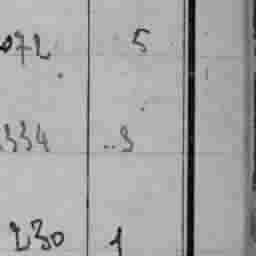 072 5
334 ..3
230 1